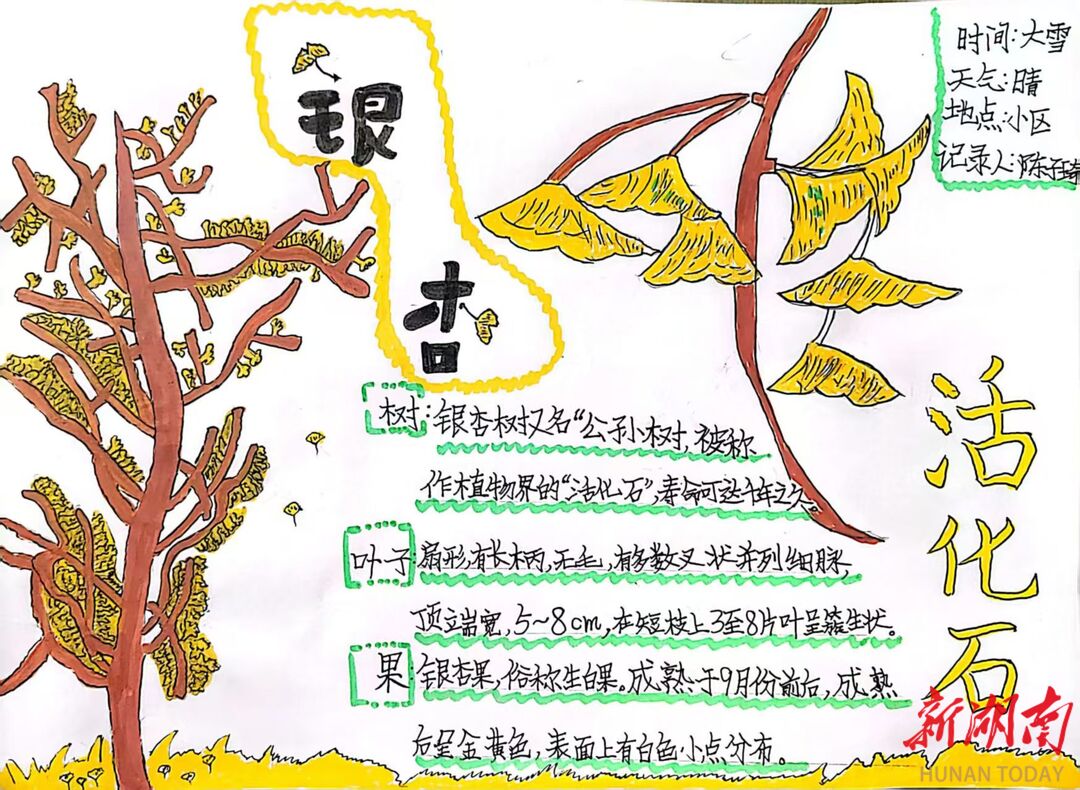 银
杏
时间:大雪
天气:晴
地点:小区
记录人:陈
树:银杏树又名“公孙树,被称
作植物界的“活化石”,寿命可达千年之久
叶子:扇形,有长柄,无毛,有多数叉状并列细脉,
顶端宽,5~8cm,在短枝上3至8片叶呈簇生状。
果:银杏果,俗称生白果。成熟于9月份前后,成熟
后呈金黄色,表面上有白色小点分布。
活化石
新湖南
HUNAN TODAY